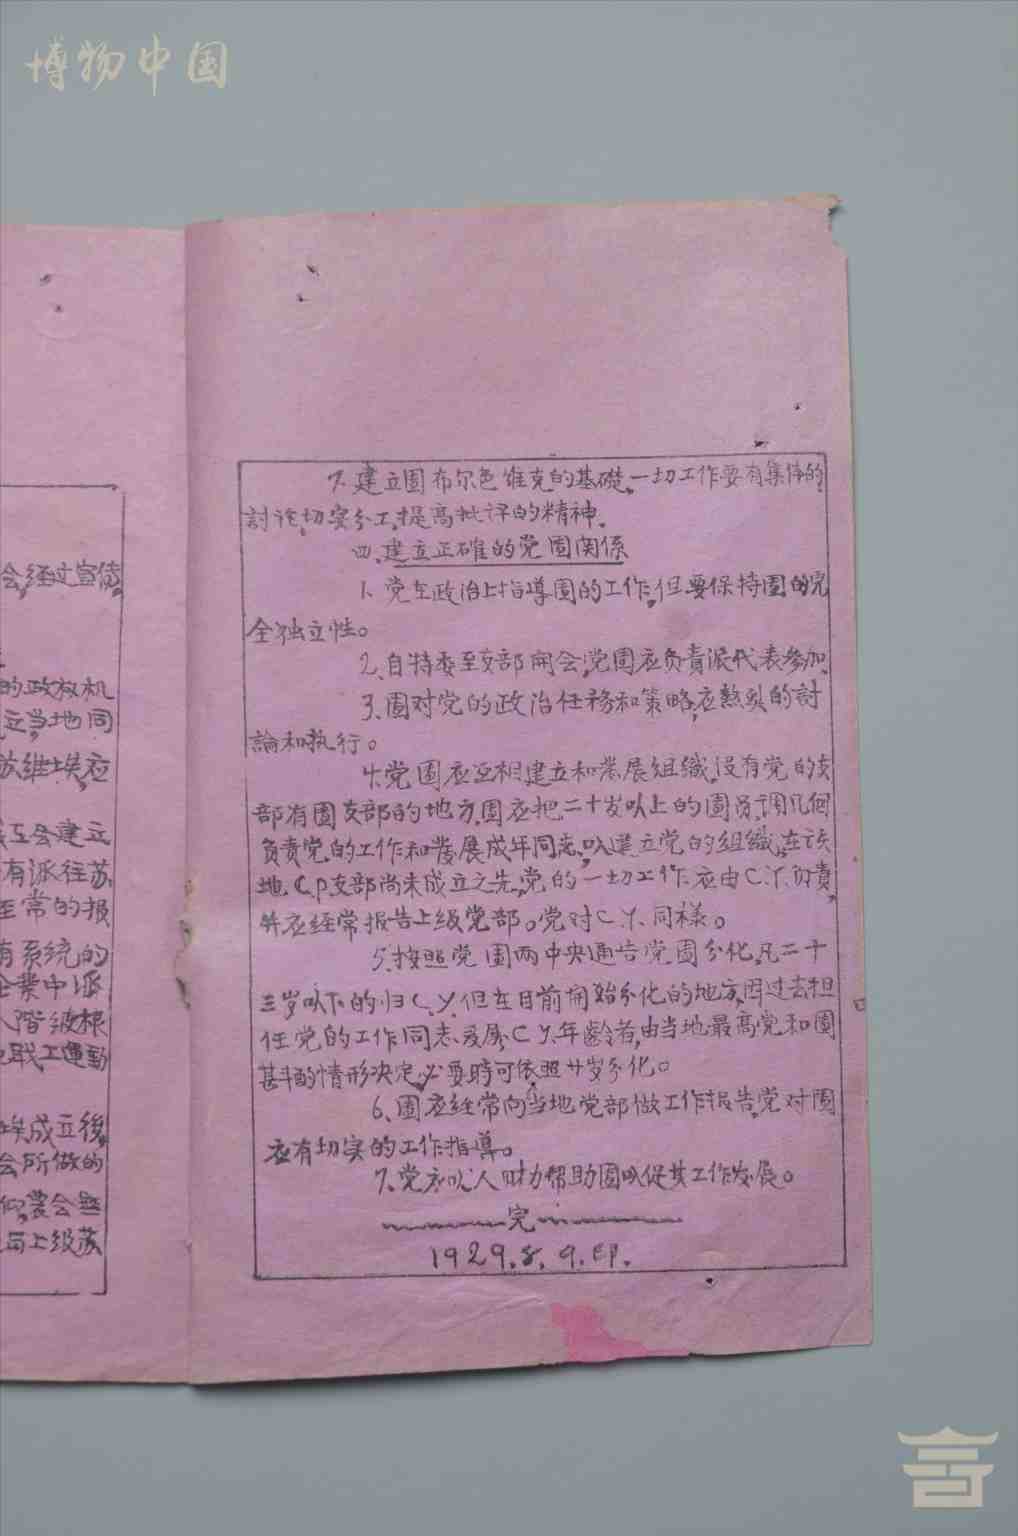 博物中国
会,经过宣傳,
的政权机
立,当地同
苏维埃,应
工会建立
有派往苏
至常的报
有系統的
企業中派
階級根
职工運動
埃成立後,
会所做的
農会
与上级苏
7.建立團布尔色维克的基礎,一切工作要有集体的
討论,切实分工,提高批评的精神.
四.建立正確的党團関係
1.党在政治上指導團的工作,但要保持團的完
全独立性。
2.自特委至支部開会,党團应负責派代表参加.
3.團对党的政治任務和策略,应熱烈的討
論和执行。
4.党團应互相建立和發展組織,没有党的支
部有團支部的地方,團应把二十岁以上的團员,調几個
负責党的工作和發展成年同志,以建立党的組織,在该
地C.P.支部尚未成立之先,党的一切工作应由C.Y.负責,
并应经常报告上级党部。党对C.Y.同樣。
5.按照党團兩中央通告党團分化,凡二十
三岁以下的归C.Y.但在目前開始分化的地方,因过去担
任党的工作同志,及属C.Y.年齡者,由当地最高党和團
甚斗的情形决定,必要時可依照廿岁分化。
6.團应经常向当地党部做工作报告,党对團
应有切实的工作指導。
7.党应以人财力帮助團以促其工作发展。
完
1929.8.9.EP.